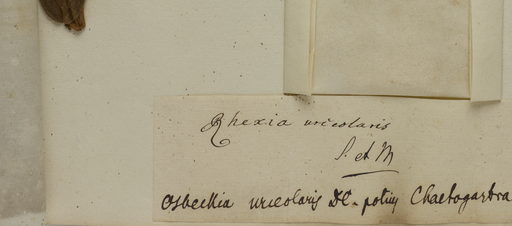 Rhexia urceolaris
S. et M
Osbeckia urceolaris DC. potius Chaetogastra